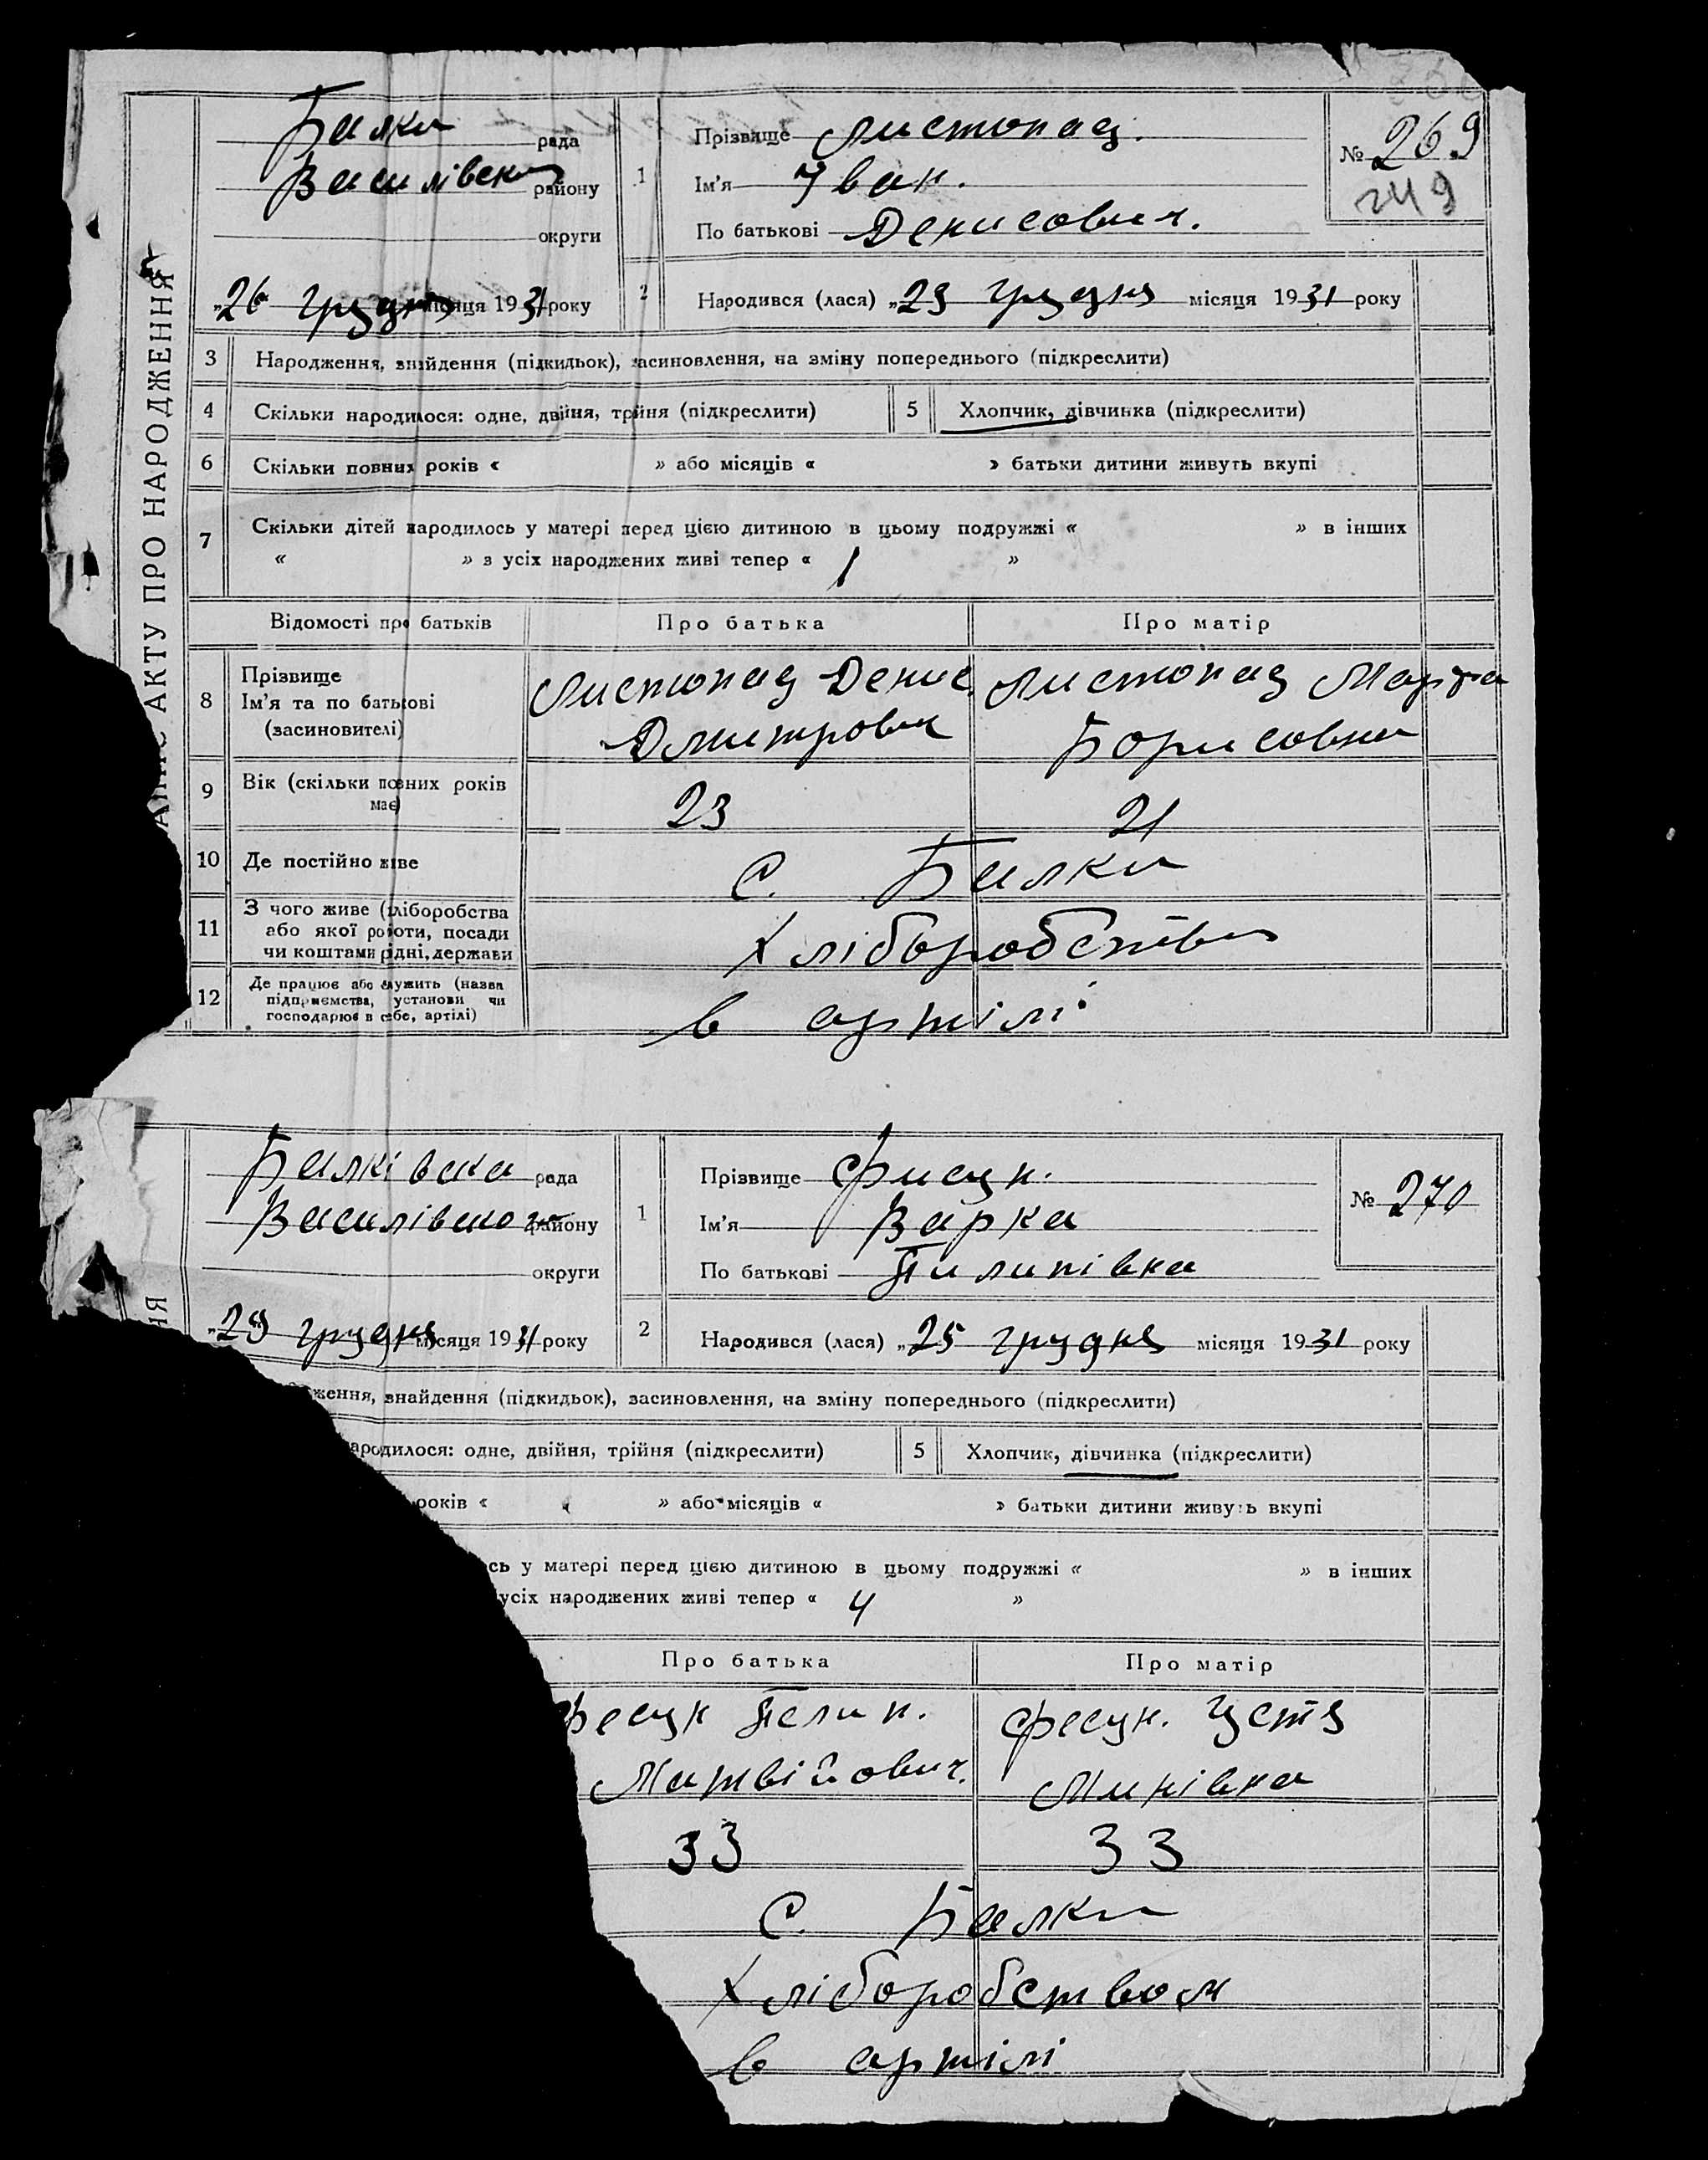 Балки рада
Василівськ району
округи
„26 грудня місяця 1931 року
№ 269
249
1 Прізвище Листопад.
Ім'я Іван.
По батькові Денисович.
2 Народився (лася) „23 грудня місяця 1931 року
АКТУ ПРО НАРОДЖЕННЯ
3 Народження, знайдення (підкидьок), засиновлення, на зміну попереднього (підкреслити)
4 Скільки народилося: одне, двійня, трійня (підкреслити) 5 Хлопчик, дівчинка (підкреслити)
6 Скільки повних років « » або місяців « » батьки дитини живуть вкупі
7 Скільки дітей народилось у матері перед цією дитиною в цьому подружжі « » в інших
« » з усіх народжених живі тепер « 1 »
Відомості про батьків Про батька Про матір
8 Прізвище
Ім'я та по батькові
(засиновителі)
Листопад Денис
Дмитрович
Листопад Марфа
Борисовна
9 Вік (скільки повних років
має) 23 21
10 Де постійно живе с. Балки
11 З чого живе (хліборобства
або якої роботи, посади
чи коштами рідні, держави
Хліборобство
12 Де працює або служить (назва
підприємства, установи чи
господарює в себе, артілі)
в артілі
Балківска рада
Василівского району
округи
„29 грудня місяця 1931 року
№ 270
1 Прізвище Фисун.
Ім'я Варка
По батькові Пилипівна
2 Народився (лася) „25 грудня місяця 1931 року
НЯ
ження, знайдення (підкидьок), засиновлення, на зміну попереднього (підкреслити)
ародилося: одне, двійня, трійня (підкреслити) 5 Хлопчик, дівчинка (підкреслити)
років « » або місяців « » батьки дитини живуть вкупі
сь у матері перед цією дитиною в цьому подружжі « » в інших
усіх народжених живі тепер « 4 »
Про батька Про матір
Фесун Пелип.
Матвійович.
Фесун. Устя
Минівна
33 33
с. Балки
Хліборобством
в артілі